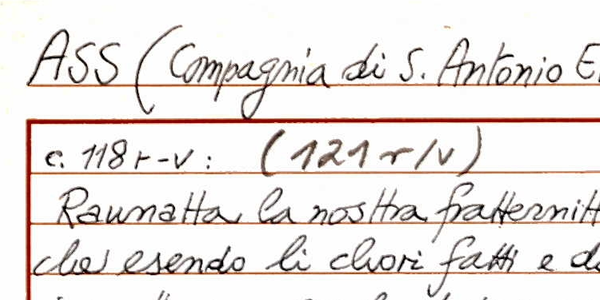 ASS (Compagnia di S. Antonio
c. 118 r-v: (121 r/v)
Raunatta la nosttra fratternitt
che esendo li chori fatti e d